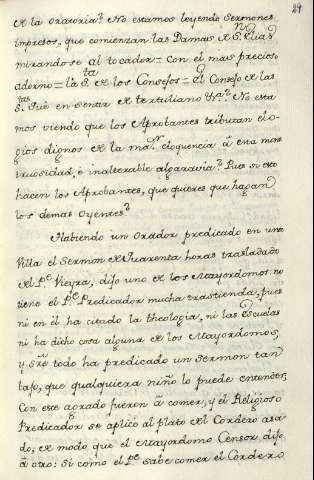 29
de la oratoria? No estamos leyendo Sermones
impresos, que comienzan las Damas de S.n Elias
mirandose al tocador = Con el mas precio
adorno = la S.ta de los Consejos = el Consejo de las
S.tas Fue en sentir de tertuliano &.a? No esta
mos viendo que los Aprobantes tributan elo-
gios dignos de la ma.r eloquencia â esta mons
truosidad, è inalterable algaravia? Pues si esto
hacen los Aprobantes, que quieres que hagan
los demas Oyentes?
Habiendo un Orador predicado en una
Villa el Sermon de Quarenta horas trasladado
del P.e Vieyra, dijo uno de los Mayordomos: no
tiene el P.e Predicador mucha trastienda, pues
ni en èl ha citado la theologia, ni las Escuelas
ni ha dicho cosa alguna de los Mayordomos,
y sre todo ha predicado un Sermon tan
bajo, que qualquiera niño lo puede entender,
Con este agrado fueron â comer, y el Religioso
Predicador se aplicó al plato del Cordero asa
do, de modo que el Mayordomo Censor dijo
â otro: Si como el P.e sabe comer el Cordero